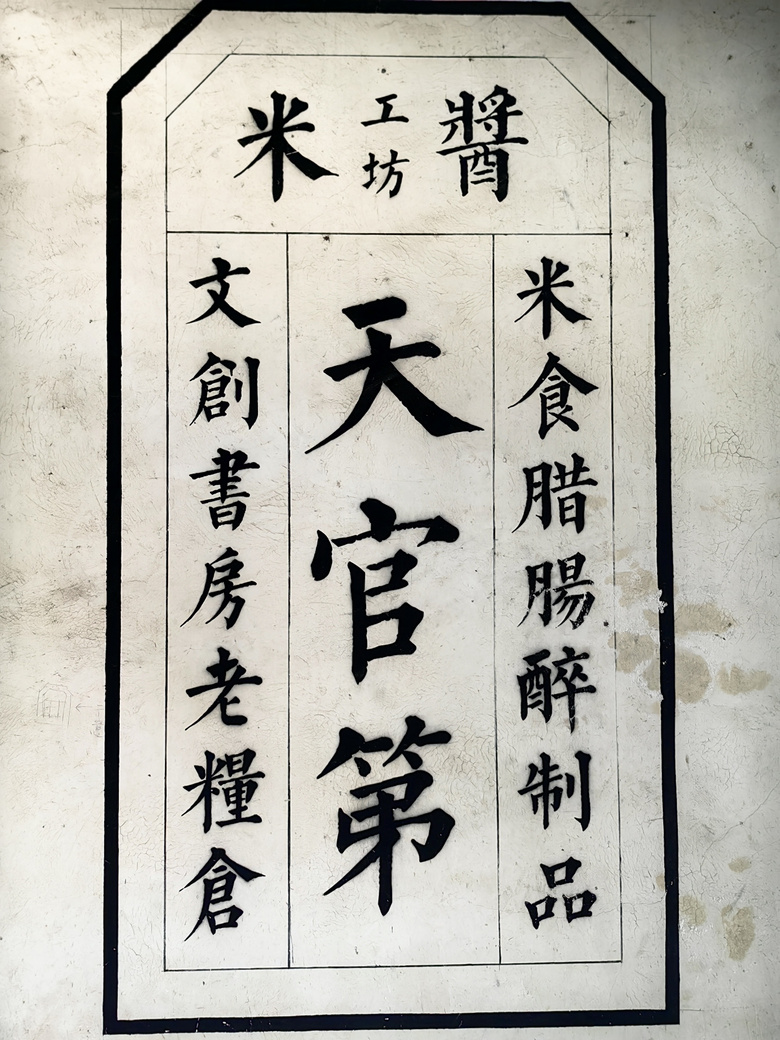 醬米
工坊
米食腊腸醉制品
天官第
文創書房老糧倉